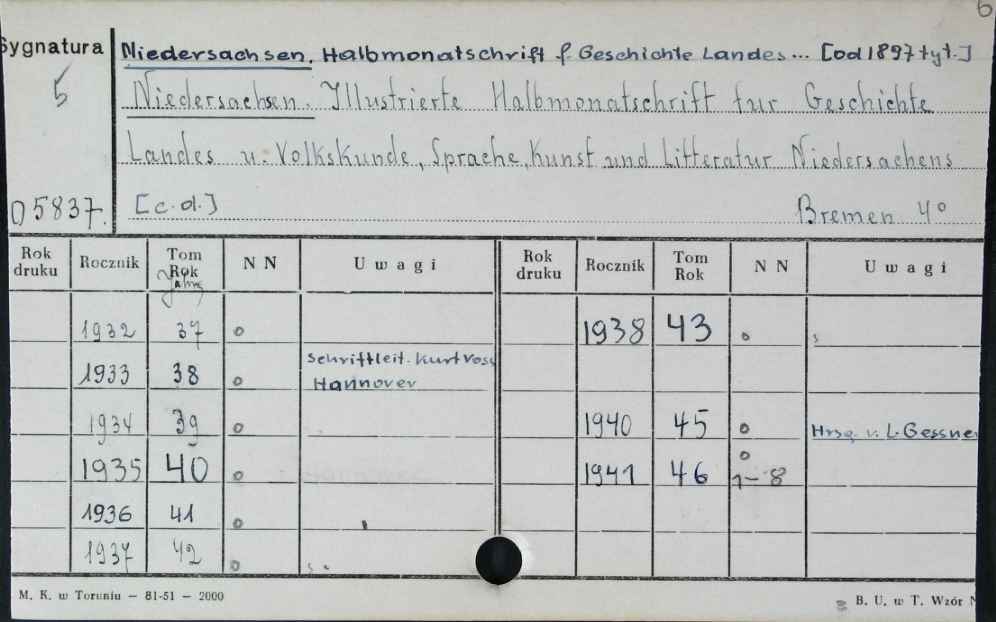 6
Sygnatura
Niedersachsen. Halbmonatschrift f. Geschichte Landes... [od 1897 tyt.]
5
Niedersachsen. Illustrierte Halbmonatschrift fur Geschichte
Landes u. Volkskunde, Sprache, Kunst und Litteratur Niedersachens
05837. [c.d.] Bremen 4°
Rok druku Rocznik Tom Rok NN Uwagi Rok druku Rocznik Tom Rok NN Uwagi
1932 37 o 1938 43 o
1933 38 o Schriftleit. Kurt Voss, Hannover
1934 39 o 1940 45 o Hrsg. v. L. Gessner
1935 40 o 1941 46 o 1-8
1936 41 o
1937 42 o
M. K. w Toruniu — 81-51 — 2000 B. U. w T. Wzór N